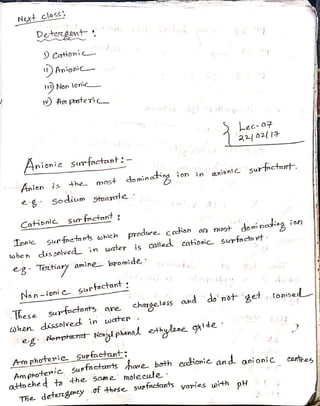 Next class:
Detergent:
i) Cationic
ii) Anionic
iii) Non ionic
iv) Amphoteric
Lec-07
22/02/17
Anionic surfactant:-
Anion is the most dominating ion in anionic surfactant.
e.g. Sodium stearate.
Cationic surfactant:
Ionic surfactants which produce cation as most dominating ion
when dissolved in water is called cationic surfactant.
e.g. Tertiary amine bromide.
Non-ionic surfactant:
These surfactants are chargeless and do not get ionised
when dissolved in water.
e.g. Nonyl phenol ethylene oxide. ?
Amphoteric surfactant:
Amphoteric surfactants have both cationic and anionic centres
attached to the same molecule.
The detergency of these surfactants varies with pH